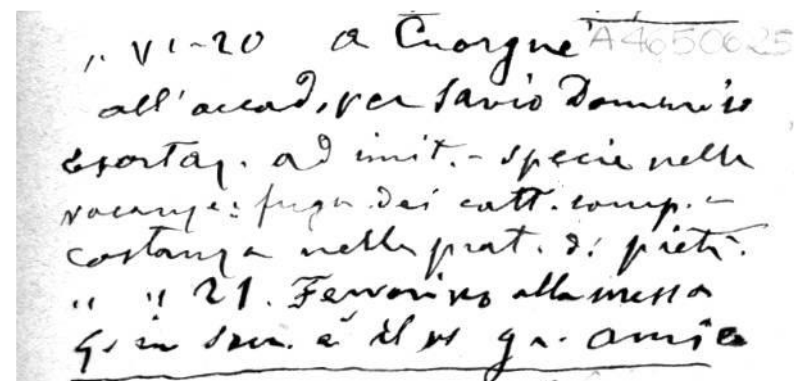 " VI-20 a Cuorgnè A4650625
all'accad. per Savio Domenico
Esortaz. ad imit. - specie nelle
vacanze: fuga dei catt. comp. -
costanza nella prat. di pietà.
" " 21. Fervorino alla messa
G. in è il ns gr. amico